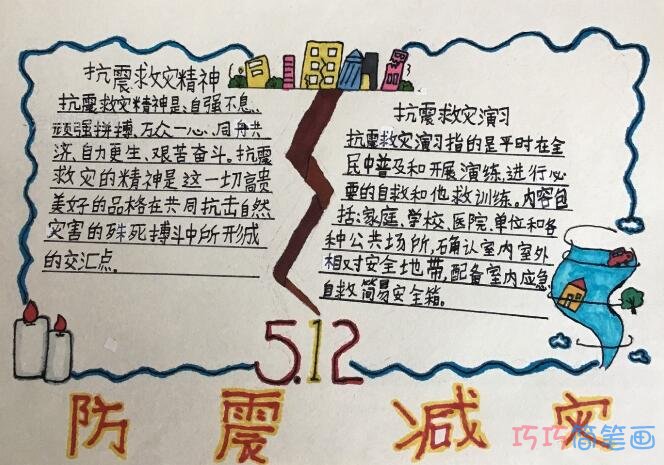 抗震救灾精神
抗震救灾精神是:自强不息、
顽强拼搏、万众一心、同舟共
济、自力更生、艰苦奋斗。抗震
救灾的精神是这一切高贵
美好的品格在共同抗击自然
灾害的殊死搏斗中所形成
的交汇点。
抗震救灾演习
抗震救灾演习指的是平时在全
民中普及和开展演练,进行必
要的自救和他救训练。内容包
括:家庭、学校、医院、单位和各
种公共场所,确认室内室外
相对安全地带,配备室内应急
自救简易安全箱。
5.12
防震减灾
巧巧简笔画